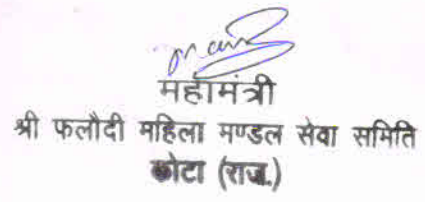 महामंत्री
श्री फलौदी महिला मण्डल सेवा समिति
कोटा (राज.)